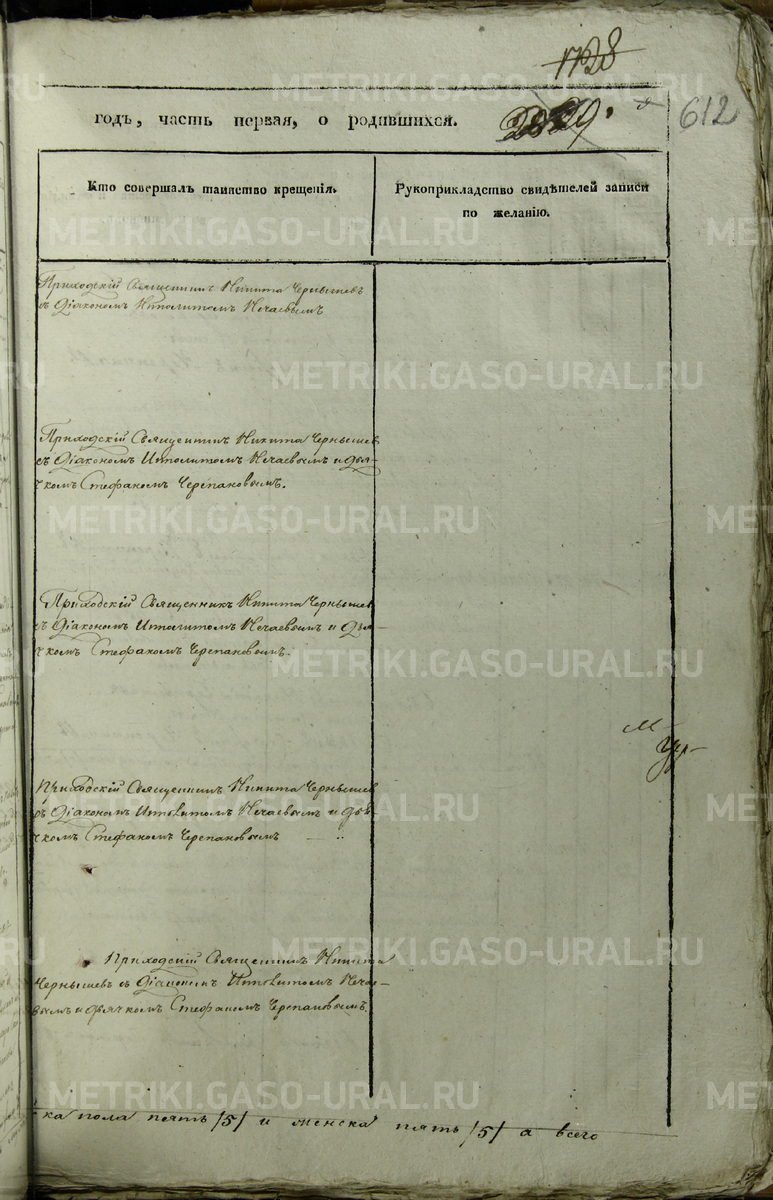 1728
612
годъ, часть первая, о родившихся.
Кто совершалъ таинство крещенія.
Рукоприкладство свидѣтелей записи
по желанію.
Приходскій Священникъ Никита Чернышевъ
съ Діакономъ Ипполитомъ Нечаевымъ
Приходскій Священникъ Никита Чернышев
съ Діакономъ Ипполитомъ Нечаевымъ и дья-
чкомъ Стефаномъ Черепановымъ.
Приходскій Священникъ Никита Чернышев
съ Діакономъ Ипполитомъ Нечаевымъ и Дья-
чкомъ Стефаномъ Черепановымъ.
Приходскій Священникъ Никита Чернышев
съ Діакономъ Ипполитомъ Нечаевымъ и дья-
чкомъ Стефаномъ Черепановымъ
Приходскій Священникъ Никита
Чернышев съ Діакономъ Ипполитомъ Нечае-
вымъ и дьячкомъ Стефаномъ Черепановымъ.
ка пола пять /5/ и женска пять /5/ а всего
METRIKI.GASO-URAL.RU